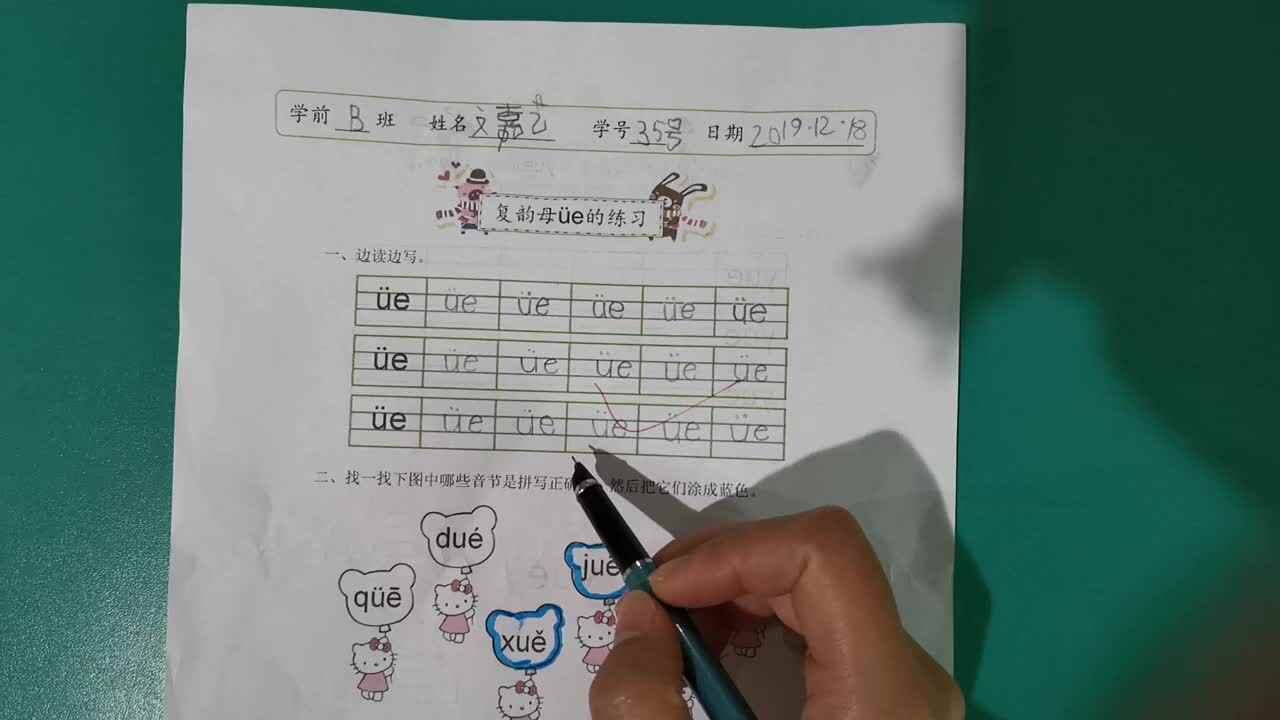 学前 B 班 姓名 文嘉 学号 35号 日期 2019.12.18
复韵母üe的练习
一、边读边写。
üe üe üe üe üe üe
üe üe üe üe üe üe
üe üe üe üe üe üe
二、找一找下图中哪些音节是拼写正确 然后把它们涂成蓝色。
dué
qüē
xuě